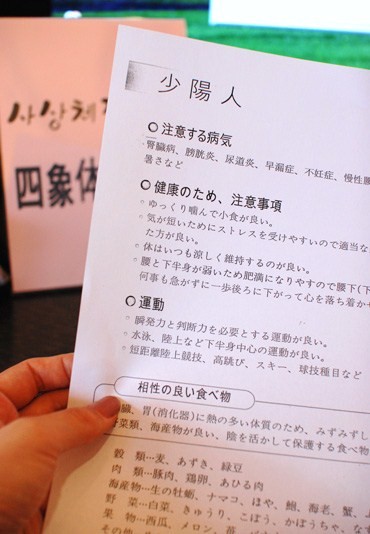 사상체
四象体
少陽人
注意する病気
腎臓病、膀胱炎、尿道炎、早漏症、不妊症、慢性腰
暑さなど
健康のため、注意事項
ゆっくり噛んで小食が良い。
気が短いためにストレスを受けやすいので適当な
た方が良い。
体はいつも涼しく維持するのが良い。
腰と下半身が弱いため肥満になりやすので腰下(下
何事も急がずに一歩後ろに下がって心を落ち着かせ
運動
瞬発力と判断力を必要とする運動が良い。
水泳、陸上など下半身中心の運動が良い。
短距離陸上競技、高跳び、スキー、球技種目など
相性の良い食べ物
臓、胃(消化器)に熱の多い体質のため、みずみずし
菜類、海産物が良い、陰を活かして保護する食べ物
穀 類…麦、あずき、緑豆
肉 類…豚肉、鶏卵、あひる肉
海産物…生の牡蛎、ナマコ、ほや、鮑、海老、蟹、
野 菜…白菜、きゅうり、ごぼう、かぼちゃ、な
果 物…西瓜、メロン、苺、
その他